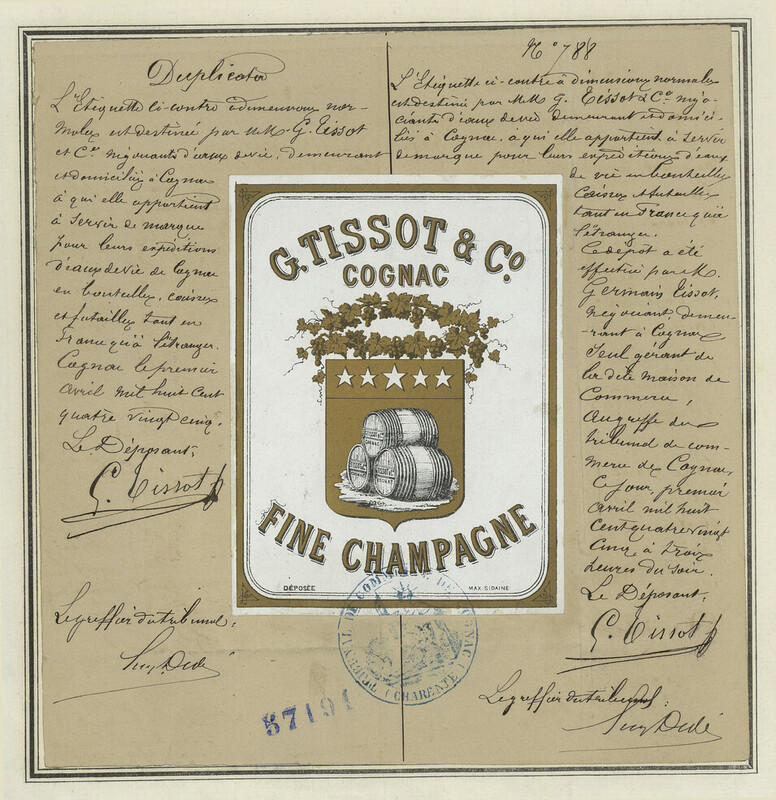 Duplicata
L'Etiquette ci-contre à dimensions nor-
males est destinée par M.M. G. Tissot
et Cie négociants d'eaux de vie, demeurant
et domiciliés à Cognac
à qui elle appartient
à servir de marque
pour leurs expéditions
d'eaux de vie de Cognac
en bouteilles, caisses
et futailles tant en
France qu'à l'étranger.
Cognac le premier
avril mil huit cent
quatre vingt cinq.
Le Déposant,
G. Tissot
Le greffier du tribunal:
No 788
L'Etiquette ci-contre à dimensions normales
est destinée par M.M. G. Tissot & Co négo-
ciants d'eaux de vie demeurant et domici-
liés à Cognac, à qui elle appartient à servir
de marque pour leurs expéditions d'eaux
de vie en bouteilles
caisses et futailles
tant en France qu'à
l'étranger.
Ce dépôt a été
effectué par M.
Germain Tissot,
négociant, demeu-
rant à Cognac
seul gérant de
la dite maison de
Commerce,
au greffe du
tribunal de com-
merce de Cognac,
ce jour, premier
avril mil huit
cent quatre vingt
cinq à trois
heures du soir.
Le Déposant,
G. Tissot
Le greffier du tribunal:
G. TISSOT & Co.
COGNAC
TISSOT & Co
COGNAC
FINE CHAMPAGNE
DÉPOSÉE
MAX. SIDAINE
TRIBUNAL DE COMMERCE DE COGNAC
(CHARENTE)
57191